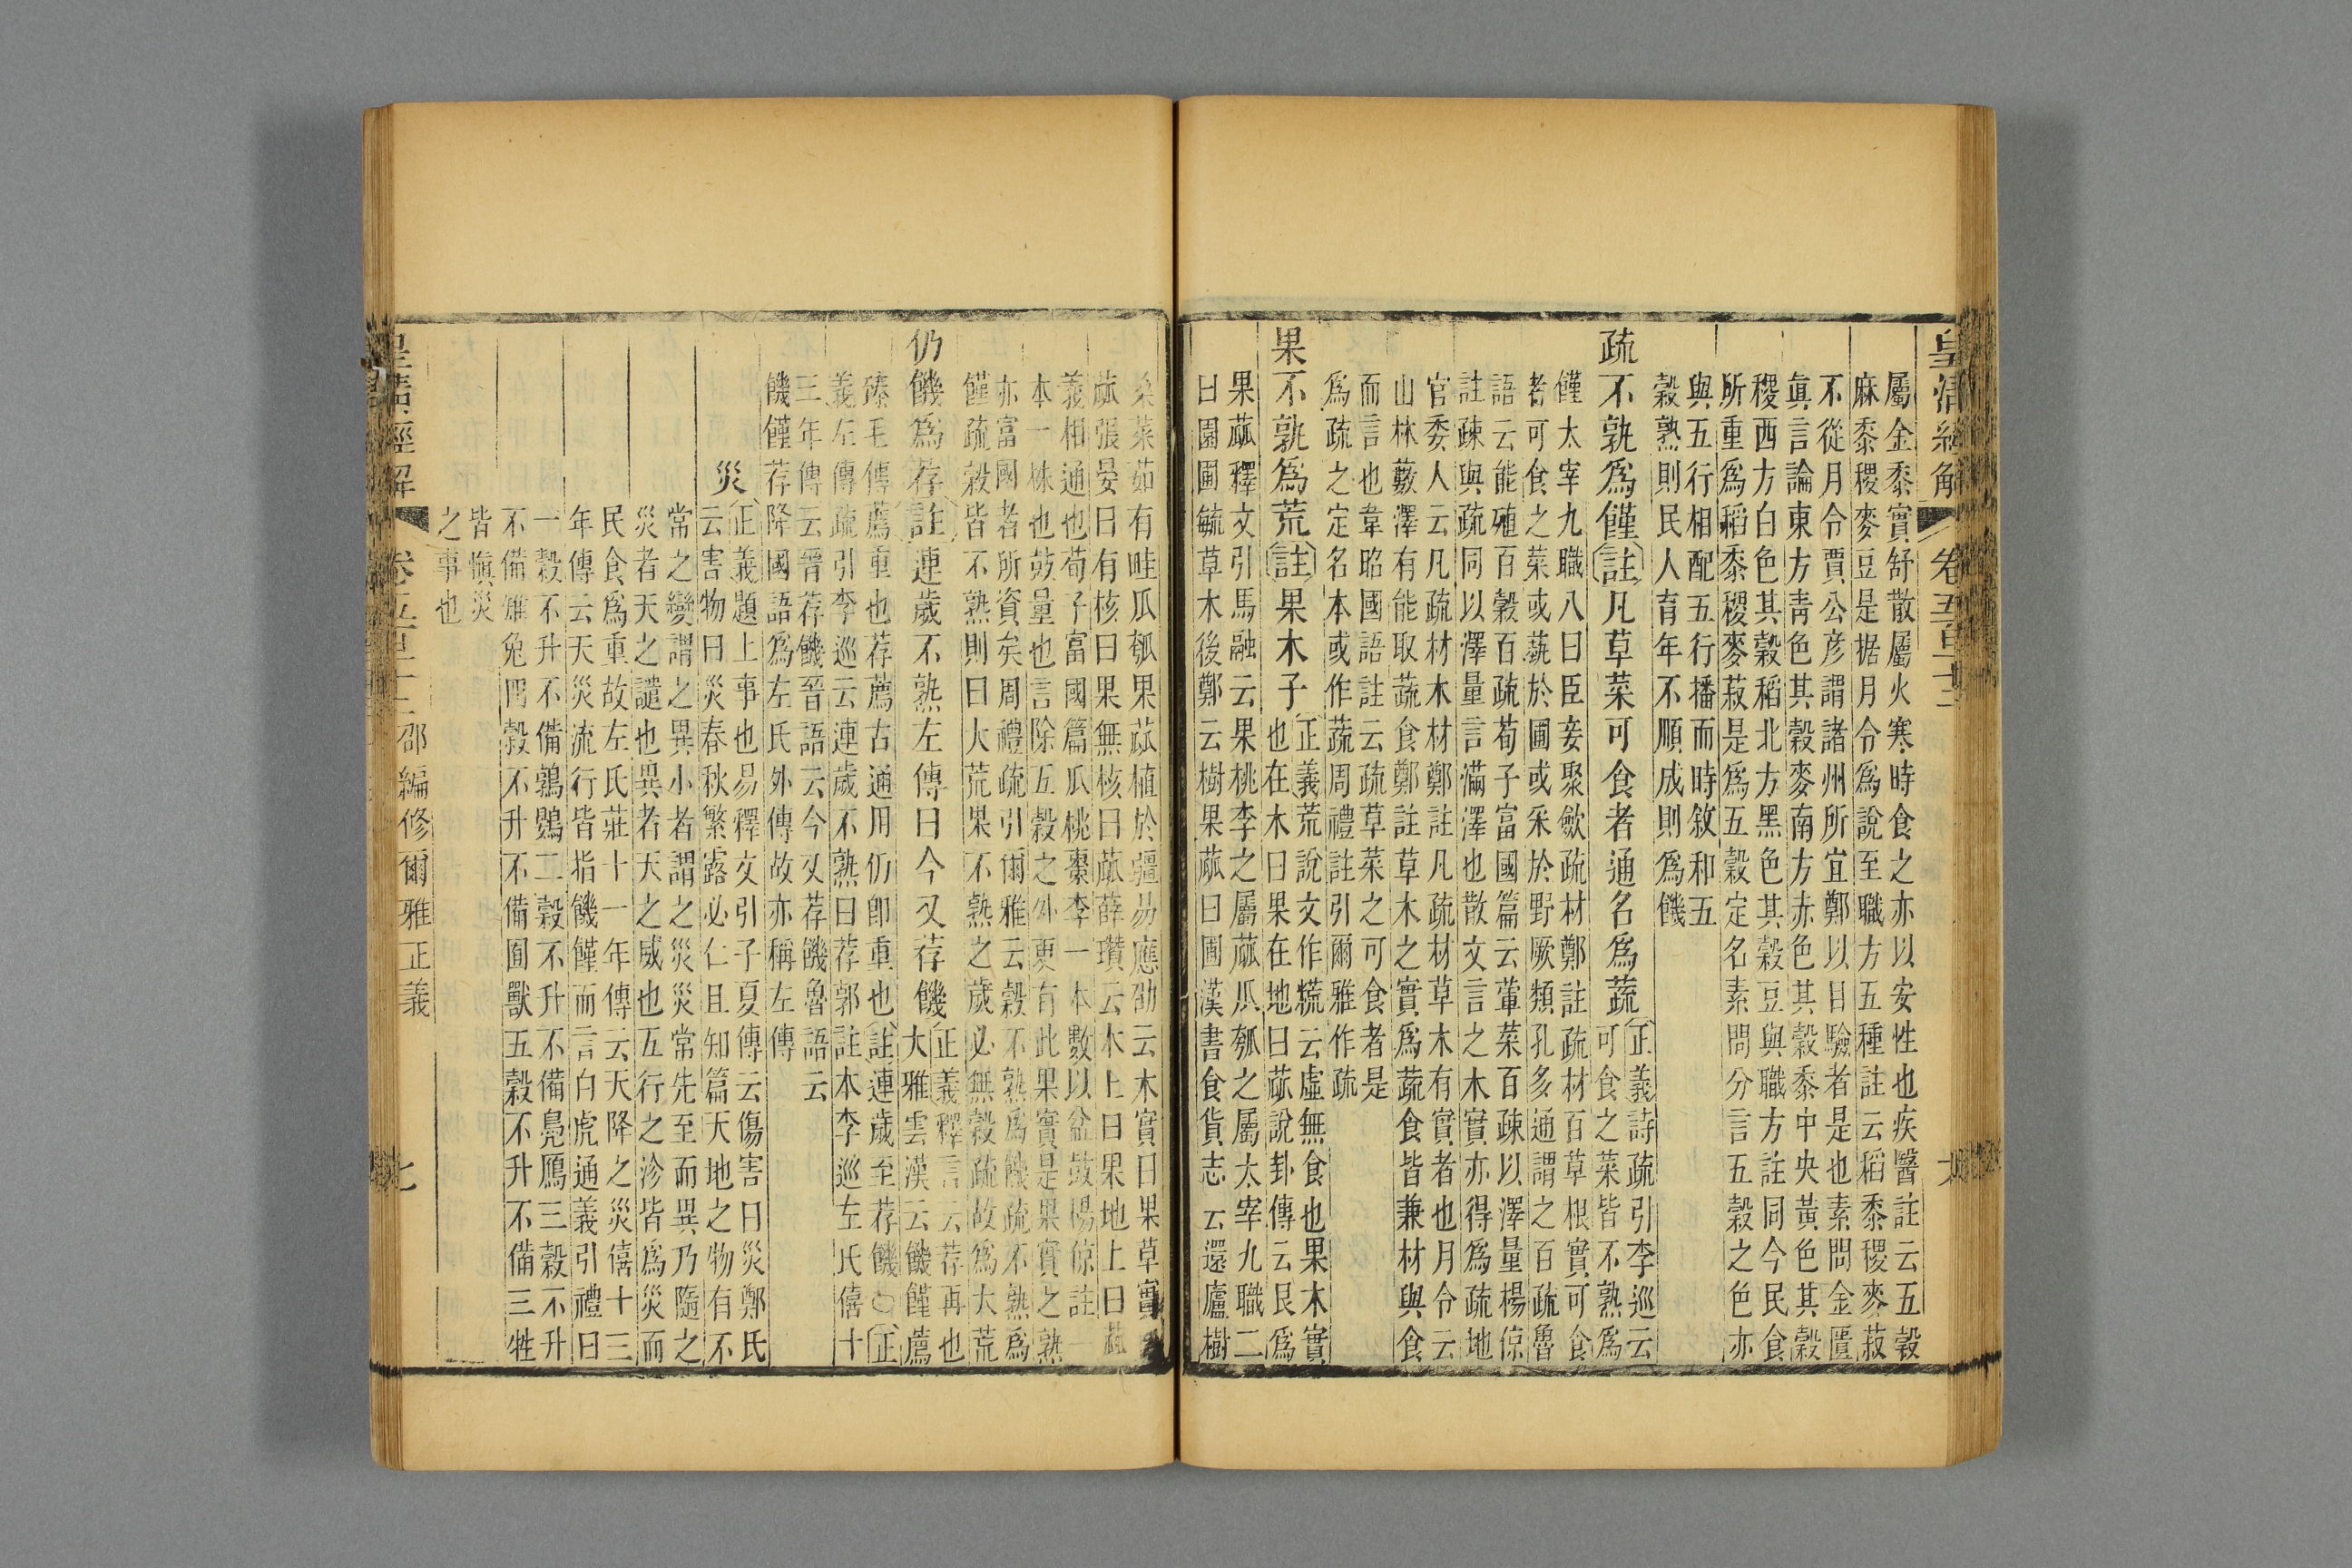 皇清經解　卷五百十
屬金黍實舒散屬火寒時食之亦以安性也疾醫註云五穀
麻黍稷麥豆是据月令爲說至職方五種註云稻黍稷麥菽
不從月令賈公彦謂諸州所宜鄭以目驗者是也素問金匱
眞言論東方靑色其穀麥南方赤色其穀黍中央黃色其穀
稷西方白色其穀稻北方黑色其穀豆與職方註同今民食
所重爲稻黍稷麥菽是爲五穀定名素問分言五穀之色亦
與五行相配五行播而時敘和五
穀熟則民人育年不順成則爲饑
疏不孰爲饉註凡草菜可食者通名爲蔬
正義詩疏引李巡云
可食之菜皆不熟爲
饉太宰九職八曰臣妾聚斂疏材鄭註疏材百草根實可食
者可食之菜或蓺於圃或采於野厥類孔多通謂之百疏魯
語云能殖百穀百疏荀子富國篇云葷菜百疎以澤量楊倞
註疎與疏同以澤量言滿澤也散文言之木實亦得爲疏地
官委人云凡疏材木材鄭註凡疏材草木有實者也月令云
山林藪澤有能取蔬食鄭註草木之實爲蔬食皆兼材與食
而言也韋昭國語註云疏草菜之可食者是
爲疏之定名本或作蔬周禮註引爾雅作疏
果不孰爲荒註果木子
正義荒說文作㡃云虛無食也果木實
也在木曰果在地曰蓏說卦傳云艮爲
果蓏釋文引馬融云果桃李之屬蓏瓜瓠之屬太宰九職二
曰園圃毓草木後鄭云樹果蓏曰圃漢書食貨志云還廬樹
桑菜茹有畦瓜瓠果蓏植於疆易應劭云木實曰果草實
蓏張晏曰有核曰果無核曰蓏薛瓚云木上曰果地上曰蓏
義相通也荀子富國篇瓜桃棗李一本數以盆鼓楊倞註一
本一株也鼓量也言除五穀之外更有此果實是果實之熟
亦富國者所資矣周禮疏引爾雅云穀不熟爲饑疏不熟爲
饉疏穀皆不熟則曰大荒果不熟之歲必無穀疏故爲大荒
仍饑爲荐註連歲不熟左傳曰今又荐饑
正義釋言云荐再也
大雅雲漢云饑饉薦
臻毛傳薦重也荐薦古通用仍卽重也註連歲至荐饑○正
義左傳疏引李巡云連歲不熟曰荐郭註本李巡左氏僖十
三年傳云晉荐饑晉語云今又荐饑魯語云
饑饉荐降國語爲左氏外傳故亦稱左傳
災
正義題上事也易釋文引子夏傳云傷害曰災鄭氏
云害物曰災春秋繁露必仁且知篇天地之物有不
常之變謂之異小者謂之災災常先至而異乃隨之
災者天之譴也異者天之威也五行之沴皆爲災而
民食爲重故左氏莊十一年傳云天降之災僖十三
年傳云天災流行皆指饑饉而言白虎通義引禮曰
一穀不升不備鶉鷃二穀不升不備鳧鴈三穀不升
不備雉兔四穀不升不備囿獸五穀不升不備三牲
皆愼災
之事也
皇清經解　卷五百十二　邵編修爾雅正義　七